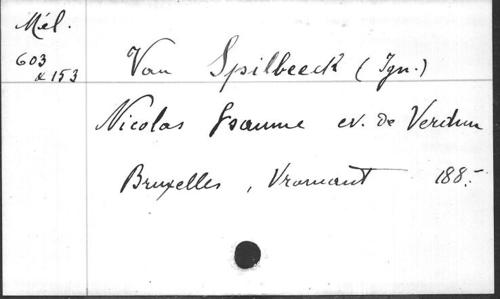 Mél.
603
& 153
Van Spilbeeck (Ign.)
Nicolas Psaume ev. de Verdun
Bruxelles, Vromant 188.-